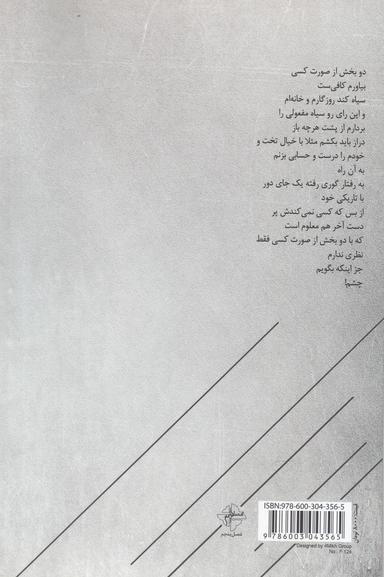 دو بخش از صورت کسی
بیاورم کافی‌ست
سیاه کند روزگارم و خانه‌ام
و این رای رو سیاه مفعولی را
بردارم از پشت هرچه باز
دراز باید بکشم مثلا با خیال تخت و
خودم را درست و حسابی بزنم
به آن راه
به رفتار گوری رفته یک جای دور
با تاریکی خود
از بس که کسی نمی‌کندش پر
دست آخر هم معلوم است
که با دو بخش از صورت کسی فقط
نظری ندارم
جز اینکه بگویم
چشم!
ISBN:978-600-304-356-5
9 786003 043565
فصل پنجم
Designed by
Group
No.: F.124